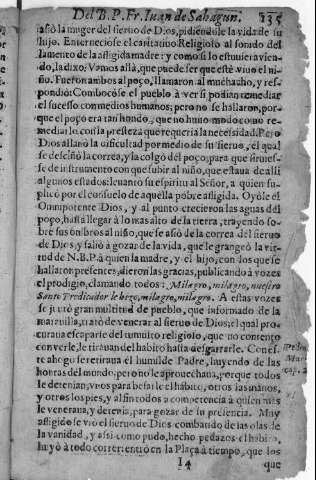 Del B. P. Fr. Iuan de Sahagun. 135
asiò la muger del sieruo de Dios, pidiendole la vida de su
hijo. Enterneciose el caritatiuo Religioso al sonido del
lamento de la afligida madre: y como si lo estuuiera vien-
do, la dixo: Vamos allà, que puede ser que estè viuo el ni-
ño. Fueron ambos al poço, llamaron al muchacho, y res-
pondiò: Combocòse el pueblo à ver si podian remediar
el sucesso con medios humanos; pero no se hallaron, por-
que el poço era tan hondo, que no huuo modo como re-
mediarlo con la presteza que requeria la necessidad. Pero
Dios allanò la dificultad por medio de su sieruo, el qual
se desciñò la correa, y la colgò del poço; para que siruies-
se de instrumento con que subir al niño, que estaua de alli
algunos estados: leuantò su espiritu al Señor, a quien su-
plicò por el consuelo de aquella pobre afligida. Oyòle el
Omnipotente Dios, y al punto crecieron las aguas del
poço, hasta llegar à lo mas alto de la tierra, trayendo so-
bre sus ombros al niño, que se asiò de la correa del sieruo
de Dios, y saliò à gozar de la vida, que le grangeò la vir-
tud de N. B. P. à quien la madre, y el hijo, con los que se
hallaron presentes, dieron las gracias, publicando à vozes
el prodigio, clamando todos: Milagro, milagro, nuestro
Santo Predicador le hizo, milagro, milagro. A estas vozes
se juntò gran multitud de pueblo, que informado de la
marauilla, tratò de venerar al sieruo de Dios; el qual pro-
curaua escaparse del tumulto religioso, que no contento
con verle, le tirauan del habito hasta desgarrarle. Con es-
te ahogo se retiraua el humilde Padre, huyendo de las
honras del mundo, pero no le aprouechana, porque todos
le detenian, vnos para besarle el habito, otros las manos,
y otros los pies, y al fin todos a competencia à quien mas
le venerana, y detenia, para gozar de su presencia. Muy
afligido se viò el sieruo de Dios combatido de las olas de
la vanidad, y assi como pudo, hecho pedazos el habito,
huyò à todo correr: entrò en la Plaça à tiempo, que los
I4 que